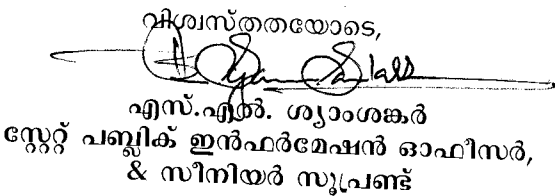 വിശ്വസ്തതയോടെ,
എസ്.എൽ. ശ്യാംശങ്കർ
സ്റ്റേറ്റ് പബ്ലിക് ഇൻഫർമേഷൻ ഓഫീസർ,
& സീനിയർ സൂപ്രണ്ട്